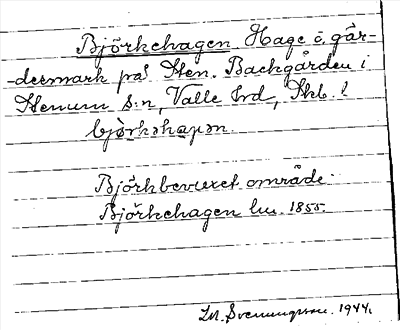 Björkehagen Hage o. går-
-desmark på Sten. Backgården i
Stenum s:n, Valle hrd, Skb. l.
bjørkəhaɡən.
Björkbevuxet område.
Björkehagen lm. 1855.
Svenungsson. 1944.